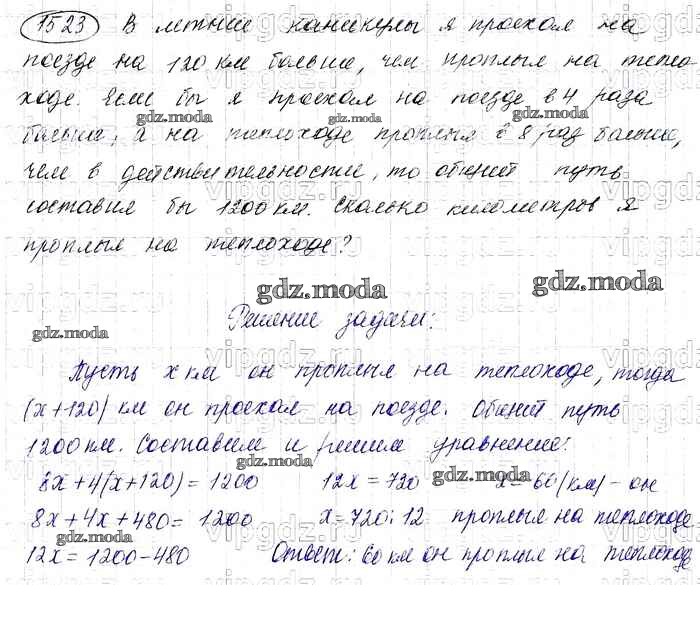 1523 В летние каникулы я проехал на
поезде на 120 км больше, чем проплыл на тепло-
ходе. Если бы я проехал на поезде в 4 раза
больше, а на теплоходе проплыл в 8 раз больше,
чем в действительности, то общий путь
составил бы 1200 км. Сколько километров я
проплыл на теплоходе?
Решение задачи:
Пусть x км он проплыл на теплоходе, тогда
(x+120) км он проехал на поезде. Общий путь
1200 км. Составим и решим уравнение:
8x+4(x+120)=1200 12x=720 x=60(км)-он
8x+4x+480=1200 x=720:12 проплыл на теплоходе
12x=1200-480 Ответ: 60 км он проплыл на теплоходе
gdz.moda
gdz.moda
gdz.moda
gdz.moda
gdz.moda
gdz.moda
gdz.moda
gdz.moda
gdz.moda
vipgdz.ru